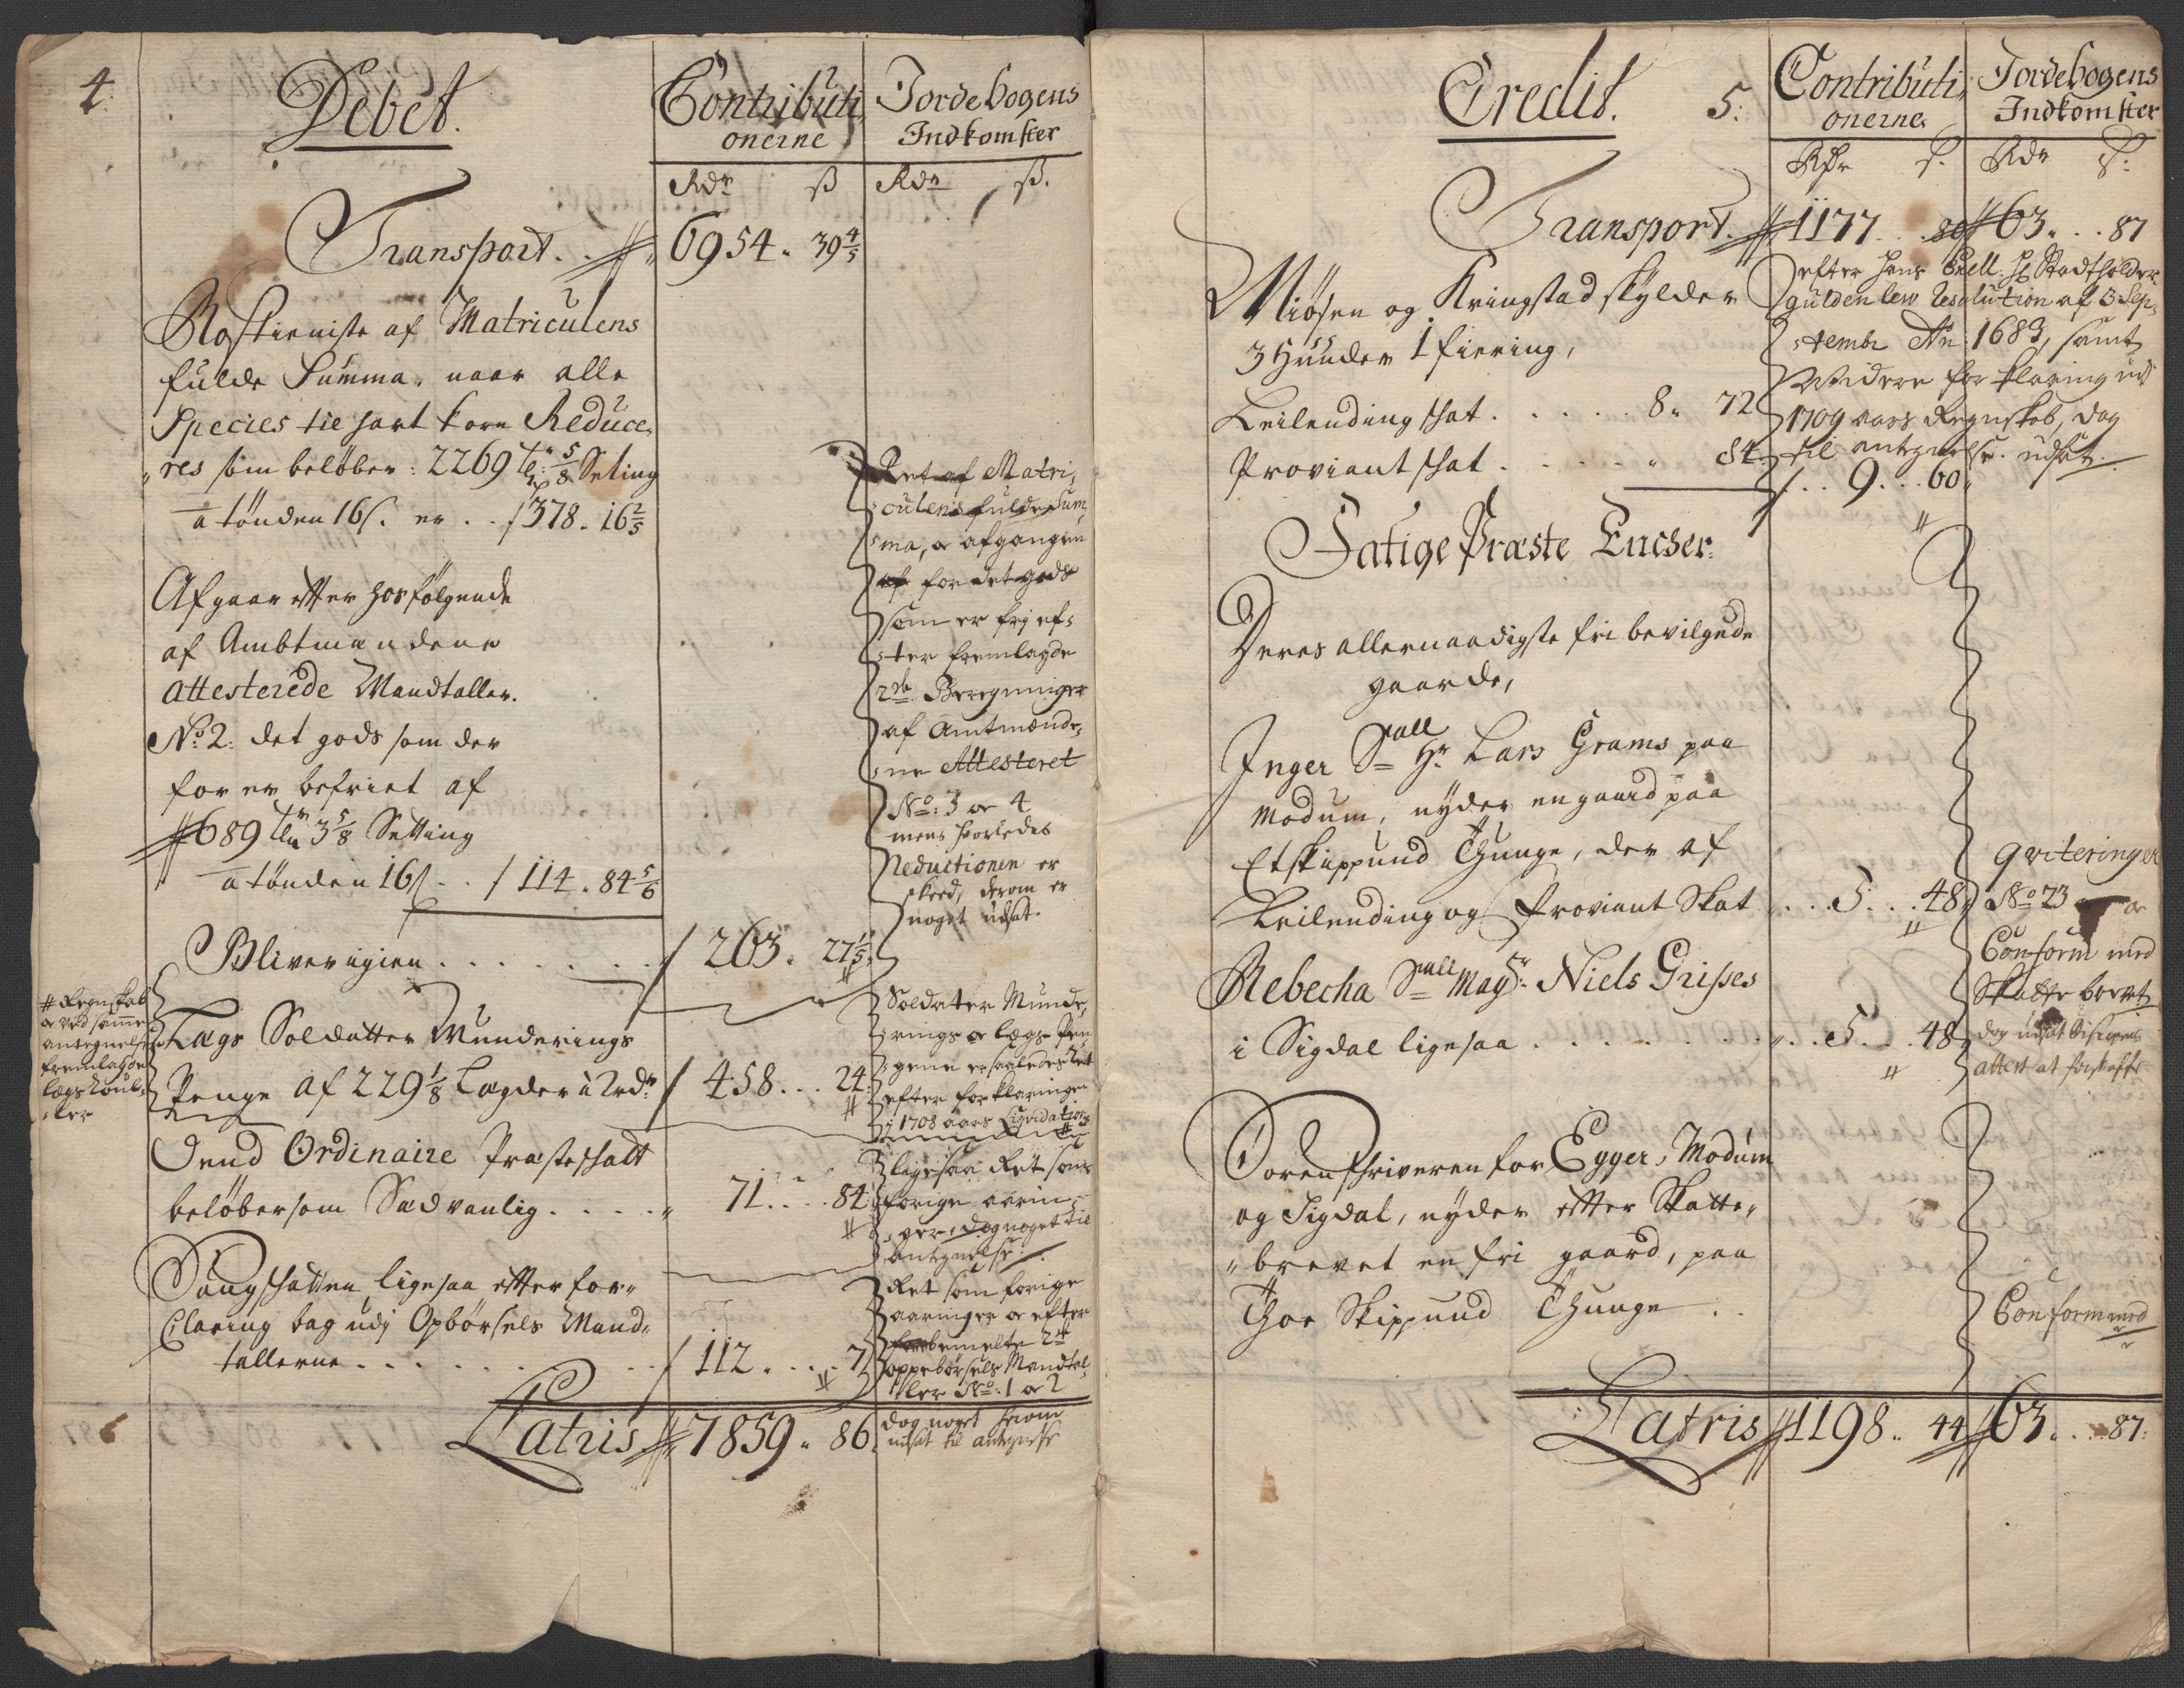 4
Debet.
Contributi,
onerne
Jordebogens
Indkomster
Rdr ß Rdr ß.
Transport. . 6954. 39 4/5
Rostieniste af Matriculens
fulde Summa, naar alle
Species til hart korn Reduce,
res som beløber: 2269 tr: 5/8 Seting
a tønden 16 ß. er . . 378. 16 2/5
Afgaar efter hosfølgende
af Ambtmandene
attesterede Mandtaller.
No: 2: det gods som der
for er befriet af
689 tr 3 5/8 Setting
a tønden 16 ß . . 114. 84 5/6
Bliver igien . . . . . . 263. 27 1/5
Lægs Soldatter Munderings
Penge af 229 1/8 Lægder a 2 rdr 458. . . 24.
Dend Ordinaire Præsteschatt
beløber som Sædvanlig . . . . 71. . . . 84
Saugschatten ligesaa efter for,
Claring bag udj Opbørsels Mand,
tallerne . . . . . . . 112. . . . 7
Latris 7859. 86.
Ret af Matri,
culens fulde Sum,
ma, og afgangen
for det gods
som er frj ef,
ter fremlagde
2de Beregninger
af Amtmænde,
ne Attesteret
No: 3 og 4
mens hvorledes
Reductionen er
skeed, derom er
noget udsat.
Soldater Munde,
rings og lægs Pen
gene er saaledes Ret
efter forklaringen
i 1708 aars Liqvidation
# Regnskab
og ved samme
antegnelser
fremlagde
lægs Roul,
ler
ligesaa Ret som
forige aarin,
ger, dog noget til
antegnelse.
Ret som forige
aaringer og efter
bemelte 2de
oppebørsels Mandtal,
ler No: 1 og 2
dog noget herom
udsat til antegnelse
Credit. 5:
Contributi,
onerne
Jordebogens
Indkomster
Rdr ß. Rdr ß:
Transport. 1177. . . 80 63. . . 87
Miøsen og Kringstad skylder
3 Hunder 1 fiering,
Leilending schat . . . . . 8. 72
Proviant schat . . . . . " 84.
efter hans Excell: Hr Stadtholder
Guldenlew Resolution af 3 Sep,
tembr Ao: 1683, samt
Videre forklaring ved
1709 aars Regnskab, dog
til antegnelse udsat.
. . 9. . . 60
Fatige Præste Encher:
Deres allernaadigste fri bevilgede
gaarde,
Inger Sall Hr Lars Grams paa
Modum, nyder en gaard paa
Et skippund Thunge, der af
Leilending og Proviant Skat . . . 5. . . 48
Rebecha Sall Magr: Niels Grisses
i Sigdal ligesaa . . . . . . . . . 5. . . 48
qviteringer
No 23
Conform med
Skatte brevet
dog udsat Bispens
attest at forskaffe
Sorenschriveren for Egger, Modum
og Sigdal, nyder efter Skatte,
brevet en fri gaard, paa
Thoe Skippund Thunge . .
Conform med
Latris 1198. 44 63. . . 87: